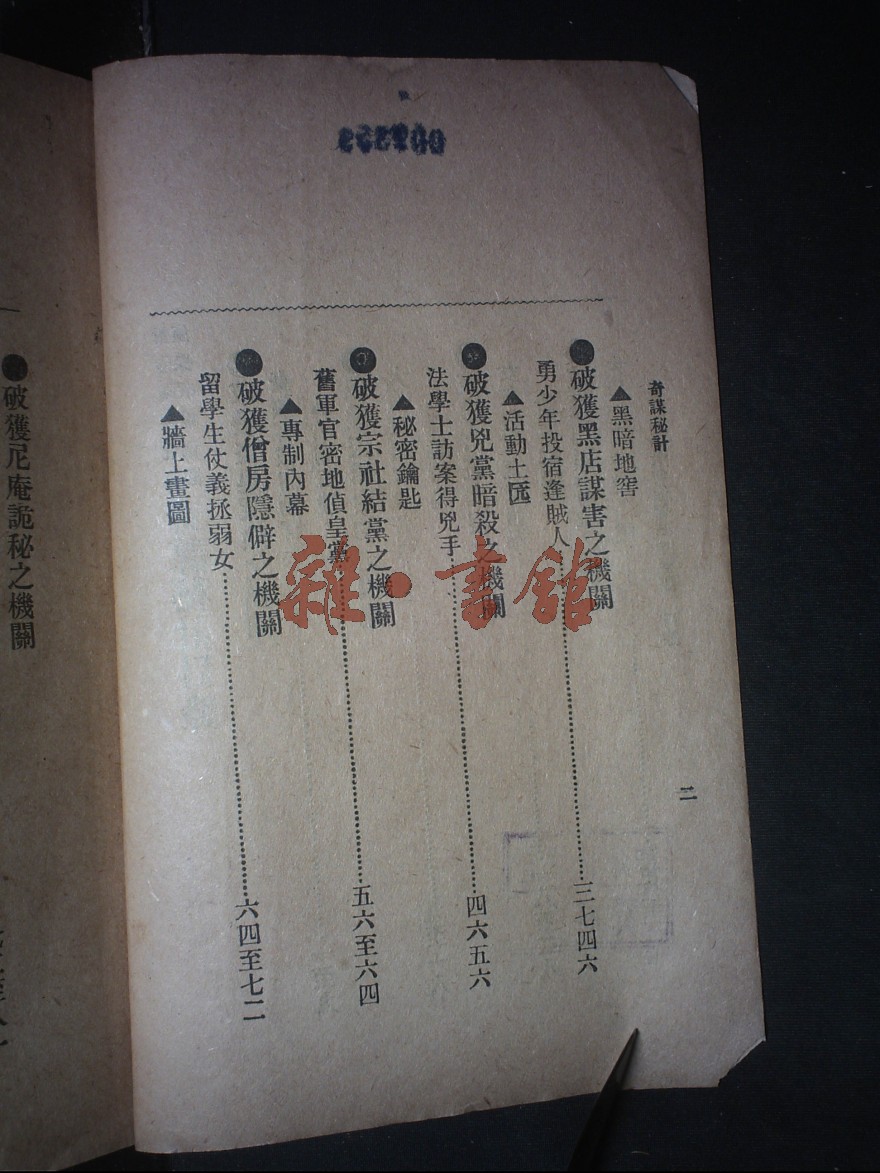 奇謀秘計
二
▲黑暗地窖
●破獲黑店謀害之機關
勇少年投宿逢賊人……三七四六
▲活動土匟
●破獲兇黨暗殺之機關
法學士訪案得兇手……四六五六
▲秘密鑰匙
●破獲宗社結黨之機關
舊軍官密地偵皇黨……五六至六四
▲專制內幕
●破獲僧房隱僻之機關
留學生仗義拯弱女……六四至七二
▲牆上畫圖
破獲尼庵詭秘之機關
雜·書館